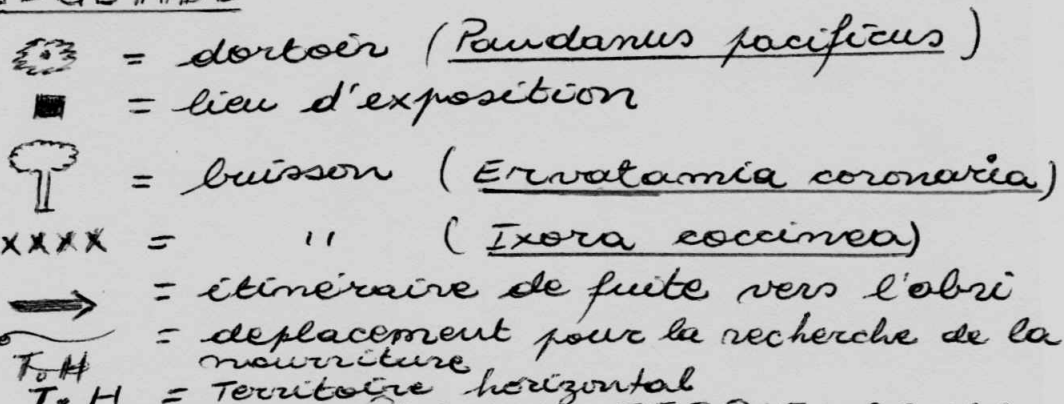 = dortoir (Pandanus pacificus)
= lieu d'exposition
= buisson (Ervatamia coronaria)
xxxx = " (Ixora coccinea)
= itinéraire de fuite vers l'abri
= déplacement pour la recherche de la
nourriture
T.H = Territoire horizontal